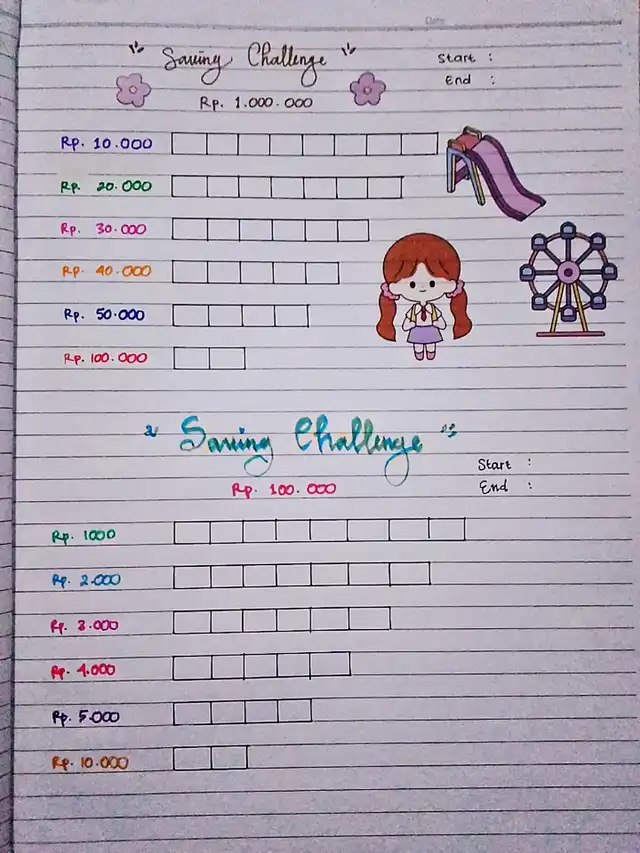 Date
Saving Challenge
Start :
End :
Rp. 1.000.000
Rp. 10.000
Rp. 20.000
Rp. 30.000
Rp. 40.000
Rp. 50.000
Rp. 100.000
Saving Challenge
Start :
Rp. 100.000
End :
Rp. 1000
Rp. 2.000
Rp. 3.000
Rp. 4.000
Rp. 5.000
Rp. 10.000